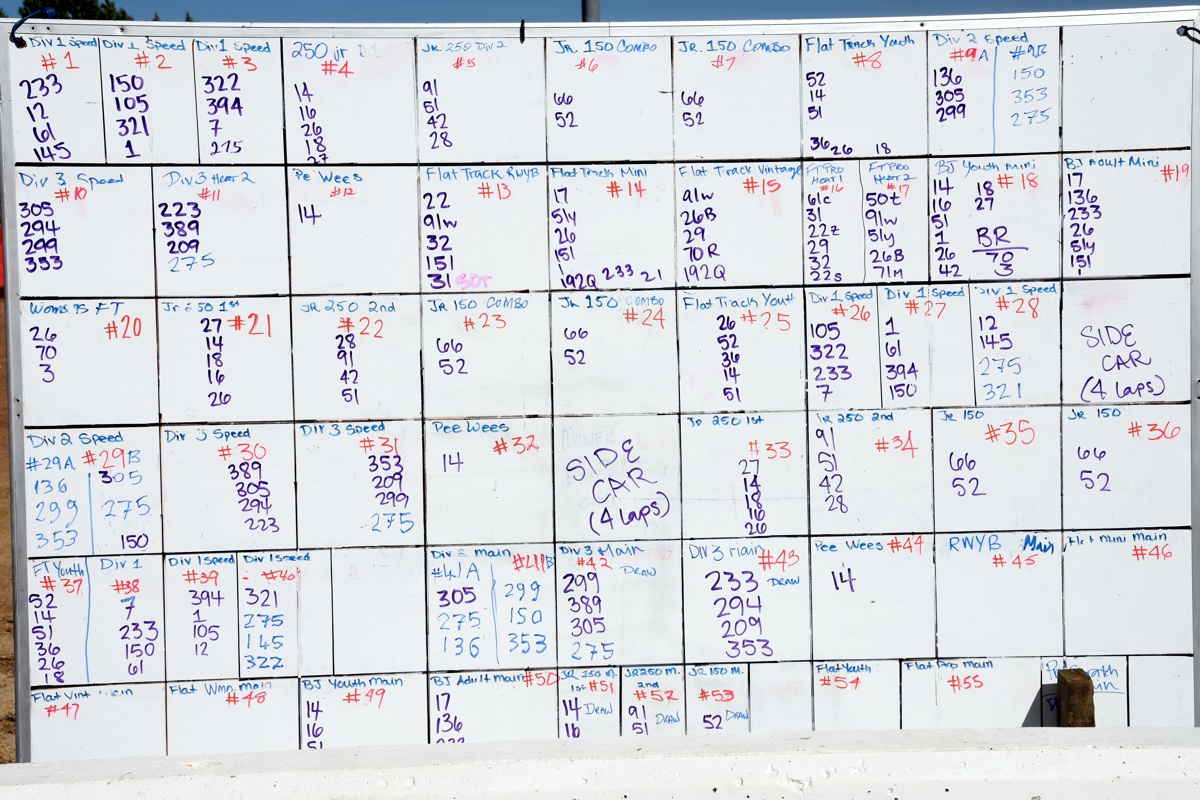 Div 1 Speed
#1
233
12
61
145
Div 1 Speed
#2
150
105
321
1
Div 1 Speed
#3
322
394
7
275
250 jr D1
#4
14
16
26
18
27
Jr 250 Div 2
#5
91
51
42
28
JR. 150 COMBO
#6
66
52
JR. 150 COMBO
#7
66
52
Flat Track Youth
#8
52
14
51
36 26 18
Div 2 Speed
#9A #9B
136 150
305 353
299 275
Div 3 Speed
#10
305
294
299
353
Div 3 Heat 2
#11
223
389
209
275
Pe Wees
#12
14
Flat Track RWYB
#13
22
91w
32
151
31 50t
Flat Track Mini
#14
17
51y
26
151
192Q 233 21
Flat Track Vintage
#15
91w
26B
29
70R
192Q
FT PRO
Heat 1
#16
61c
31
22z
29
32
22s
FT PRO
Heat 2
#17
50t
91w
51y
26B
71M
BJ Youth Mini
#18
14 18
16 27
51
1 BR
26 70
42 3
BJ Adult Mini
#19
17
136
233
26
51y
151
1
Womens FT
#20
26
70
3
Jr 250 1st
#21
27
14
18
16
26
JR 250 2nd
#22
28
91
42
51
JR 150 COMBO
#23
66
52
JR 150 COMBO
#24
66
52
Flat Track Youth
#25
26
52
36
14
51
Div 1 Speed
#26
105
322
233
7
Div 1 Speed
#27
1
61
394
150
Div 1 Speed
#28
12
145
275
321
SIDE
CAR
(4 laps)
Div 2 Speed
#29A #29B
136 305
299 275
353 150
Div 3 Speed
#30
389
305
294
223
Div 3 Speed
#31
353
209
299
275
Pee Wees
#32
14
SIDE
CAR
(4 laps)
Jr 250 1st
#33
27
14
18
16
26
JR 250 2nd
#34
91
51
42
28
JR 150
#35
66
52
JR 150
#36
66
52
FT Youth
#37
52
14
51
36
26
18
Div 1
#38
7
233
150
61
Div 1 Speed
#39
394
1
105
12
Div 1 Speed
#40
321
275
145
322
Div 2 main
#41A #41B
305 299
275 150
136 353
Div 3 Main
#42 DRAW
299
389
305
275
DIV 3 main
#43
233 DRAW
294
209
353
Pee Wees #44
14
RWYB Main
#45
Flat Mini main
#46
Flat Vint main
#47
Flat Wmn main
#48
BJ Youth Main
#49
14
16
51
BJ Adult main #50
17
136
233
JR 250 M.
1st #51
14 DRAW
16
JR 250 M.
2nd
#52
91 DRAW
51
JR 150 M.
#53
52 DRAW
Flat Youth
#54
Flat Pro main
#55